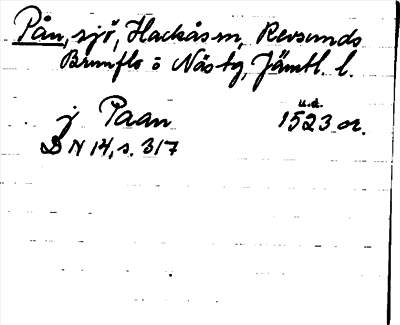 Pån, sjö, Hackås m, Revsunds
Brunflo o Näs tg, Jämtl. l.
u.d.
j Paan 1523 or.
DN 14, s. 317